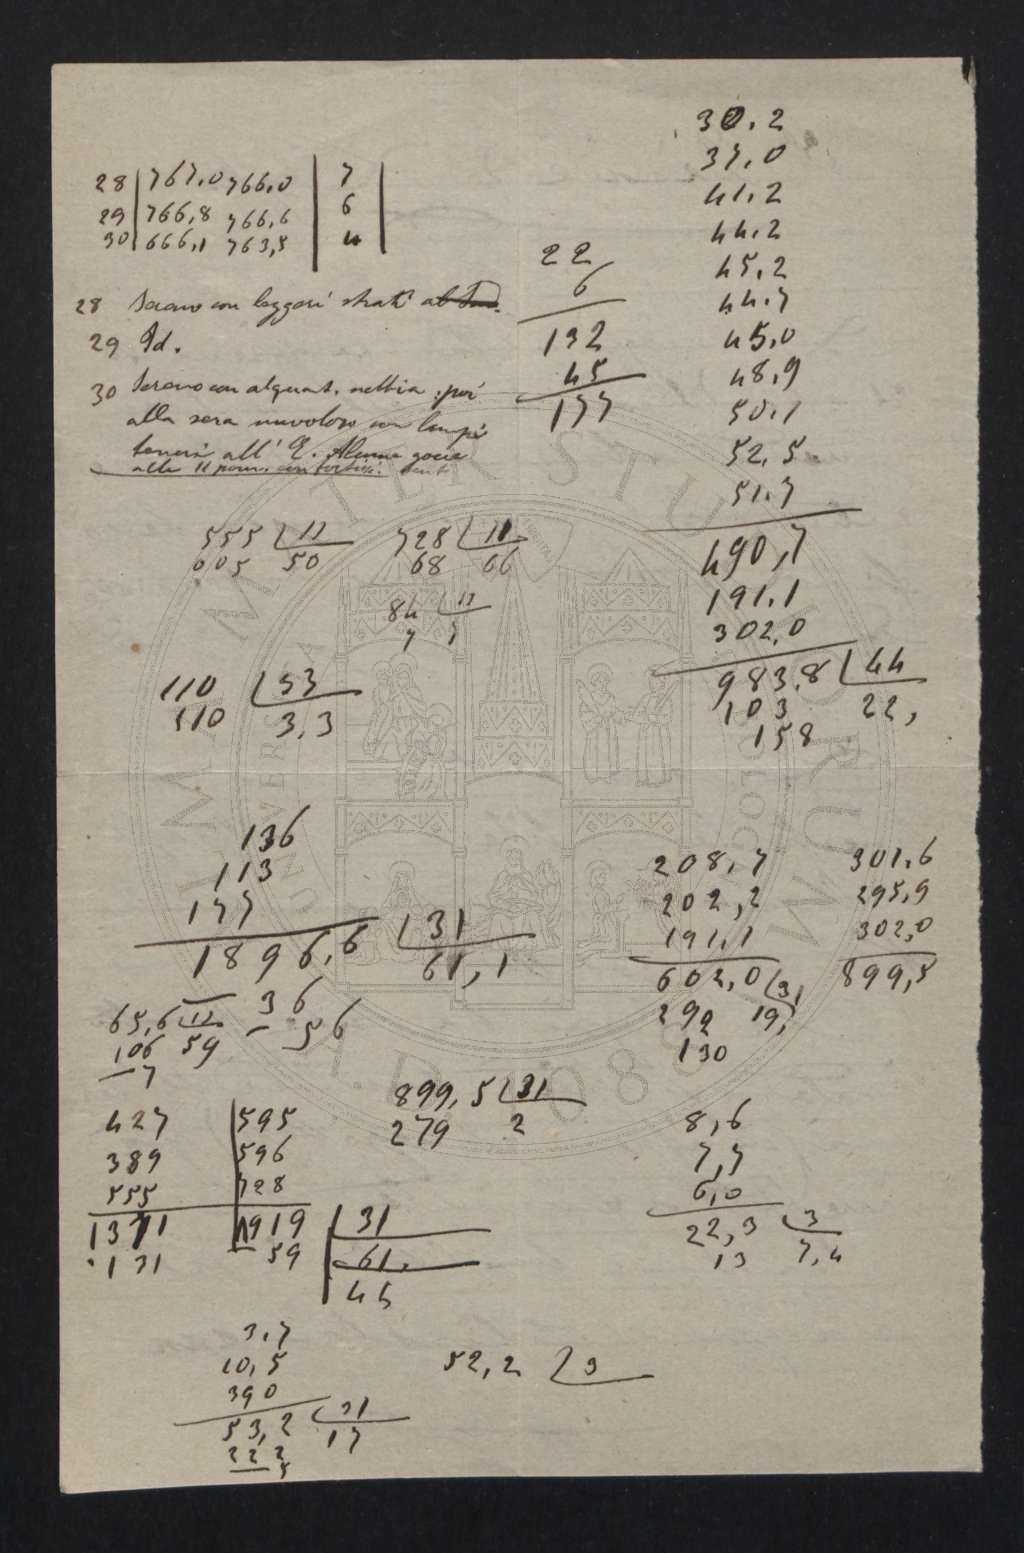 28 | 767,0 766,0 | 7 |
29 | 766,8 766,6 | 6 |
30 | 666,1 763,5 | 4 |
28 Sereno con leggeri strati al
29 Id.
30 Sereno con alquant. nebbia; poi
alla sera nuvoloso con lampi
all' E. Alcune gocce
alle 11 pom.
22
6
132
45
177
30,2
37,0
41,2
44,2
45,2
44,7
45,0
48,9
50,1
52,5
51,7
490,7
191,1
302,0
983,8 44
103 22,
158
555 11
005 50
728 11
68 66
84 11
7 7
110 33
110 3,3
136
113
177
1896,6 31
36 61,1
56
65,6 11
106 59
7
208,7
202,2
191,1
602,0 31
292 19,
130
301,6
295,9
302,0
899,5
899,5 31
279 2
427 | 595
389 | 596
555 | 728
1371 | 1919 31
131 | 59 61,
44
8,6
7,7
6,0
22,3 3
13 7,4
3,7
10,5
390
53,2 31
222 17
5
52,2 3
ALMA MATER STUDIORUM
UNIVERSITÀ DI BOLOGNA
A.D. 1088